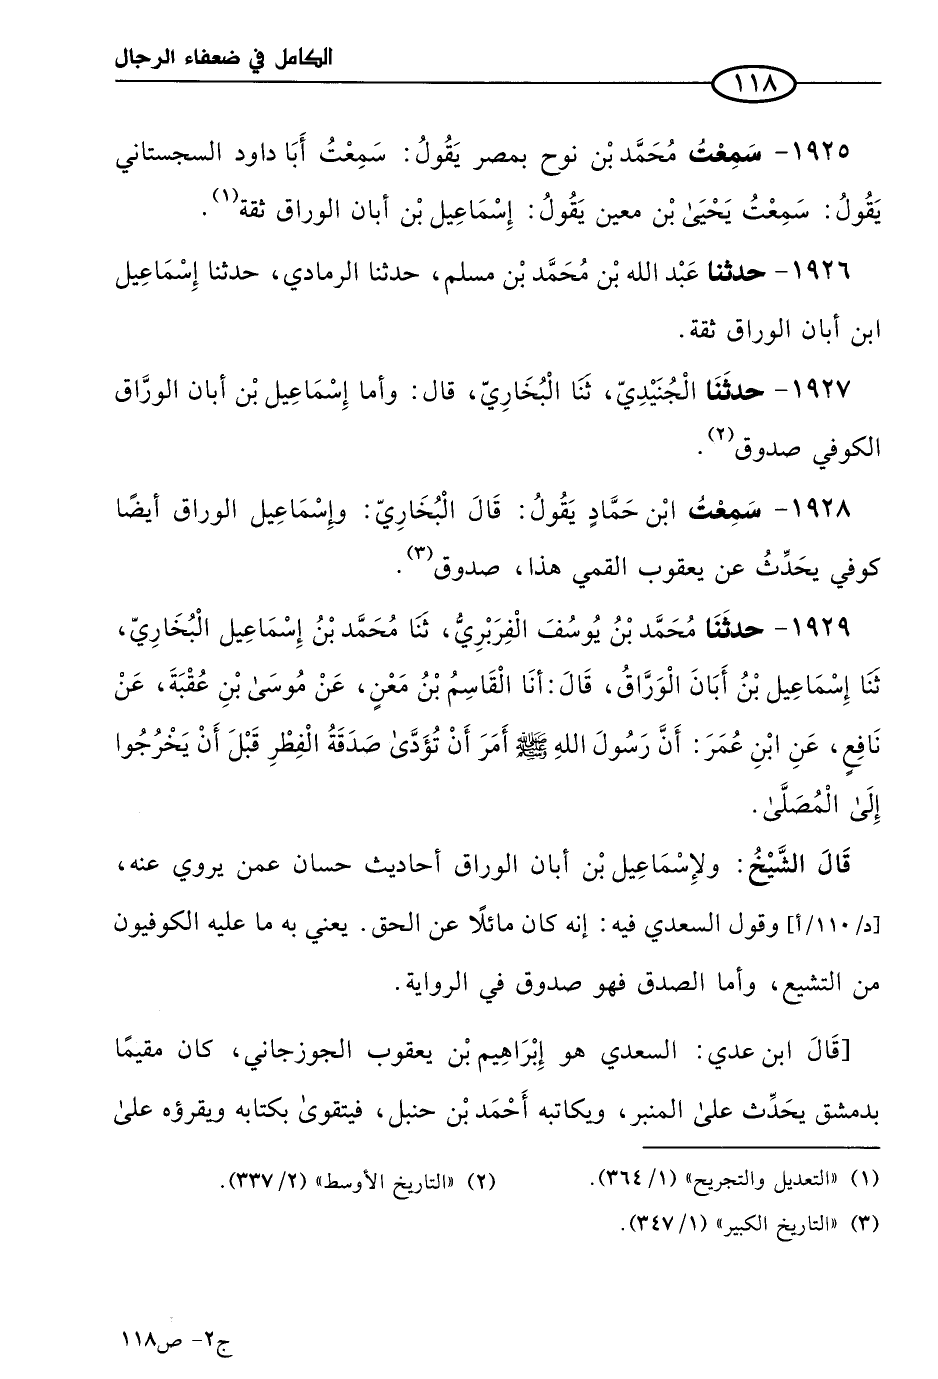 الكامل في ضعفاء الرجال
١١٨
١٩٢٥- سَمِعْتُ مُحَمَّد بْن نوح بمصر يَقُولُ: سَمِعْتُ أَبَا داود السجستاني
يَقُولُ: سَمِعْتُ يَحْيَىٰ بْن معين يَقُولُ: إِسْمَاعِيل بْن أبان الوراق ثقة(١).
١٩٢٦- حدثنا عَبْد الله بْن مُحَمَّد بْن مسلم، حدثنا الرمادي، حدثنا إِسْمَاعِيل
ابن أبان الوراق ثقة.
١٩٢٧- حدثَنَا الْجُنَيْدِيّ، ثَنَا الْبُخَارِيّ، قال: وأما إِسْمَاعِيل بْن أبان الورَّاق
الكوفي صدوق(٢).
١٩٢٨- سَمِعْتُ ابْن حَمَّادٍ يَقُولُ: قَالَ الْبُخَارِيّ: وإِسْمَاعِيل الوراق أيضًا
كوفي يحَدِّثُ عن يعقوب القمي هذا، صدوق(٣).
١٩٢٩- حدثَنَا مُحَمَّد بْنُ يُوسُفَ الْفِرَبْرِيُّ، ثَنَا مُحَمَّد بْنُ إِسْمَاعِيل الْبُخَارِيّ،
ثَنَا إِسْمَاعِيل بْنُ أَبَانَ الْوَرَّاقُ، قَالَ: أنَا الْقَاسِمُ بْنُ مَعْنٍ، عَنْ مُوسَىٰ بْنِ عُقْبَةَ، عَنْ
نَافِعٍ، عَنِ ابْنِ عُمَرَ: أَنَّ رَسُولَ اللهِ ﷺ أَمَرَ أَنْ تُؤَدَّىٰ صَدَقَةُ الْفِطْرِ قَبْلَ أَنْ يَخْرُجُوا
إِلَىٰ الْمُصَلَّىٰ.
قَالَ الشَّيْخُ: ولإِسْمَاعِيل بْن أبان الوراق أحاديث حسان عمن يروي عنه،
[د/١١٠/أ] وقول السعدي فيه: إنه كان مائلًا عن الحق. يعني به ما عليه الكوفيون
من التشيع، وأما الصدق فهو صدوق في الرواية.
[قَالَ ابن عدي: السعدي هو إِبْرَاهِيم بْن يعقوب الجوزجاني، كان مقيمًا
بدمشق يحَدِّث علىٰ المنبر، ويكاتبه أَحْمَد بْن حنبل، فيتقوىٰ بكتابه ويقرؤه علىٰ
(١) «التعديل والتجريح» (٣٦٤/١). (٢) «التاريخ الأوسط» (٣٣٧/٢).
(٣) «التاريخ الكبير» (٣٤٧/١).
ج٢- ص١١٨